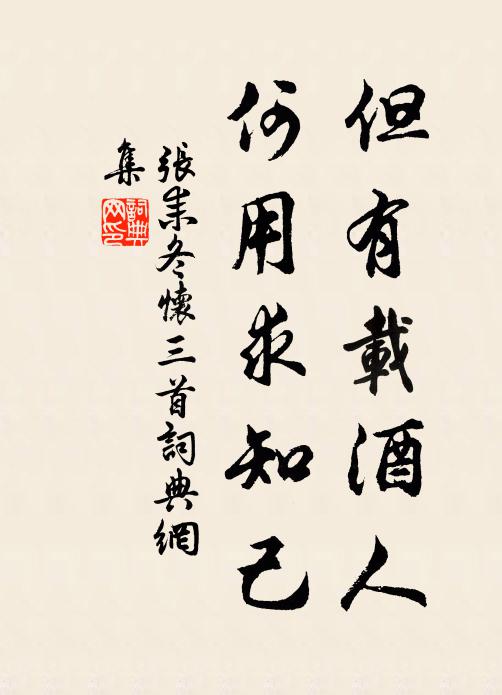 但有載酒人
何用求知己
張耒冬懷三首詞典網
集
詞典
网印